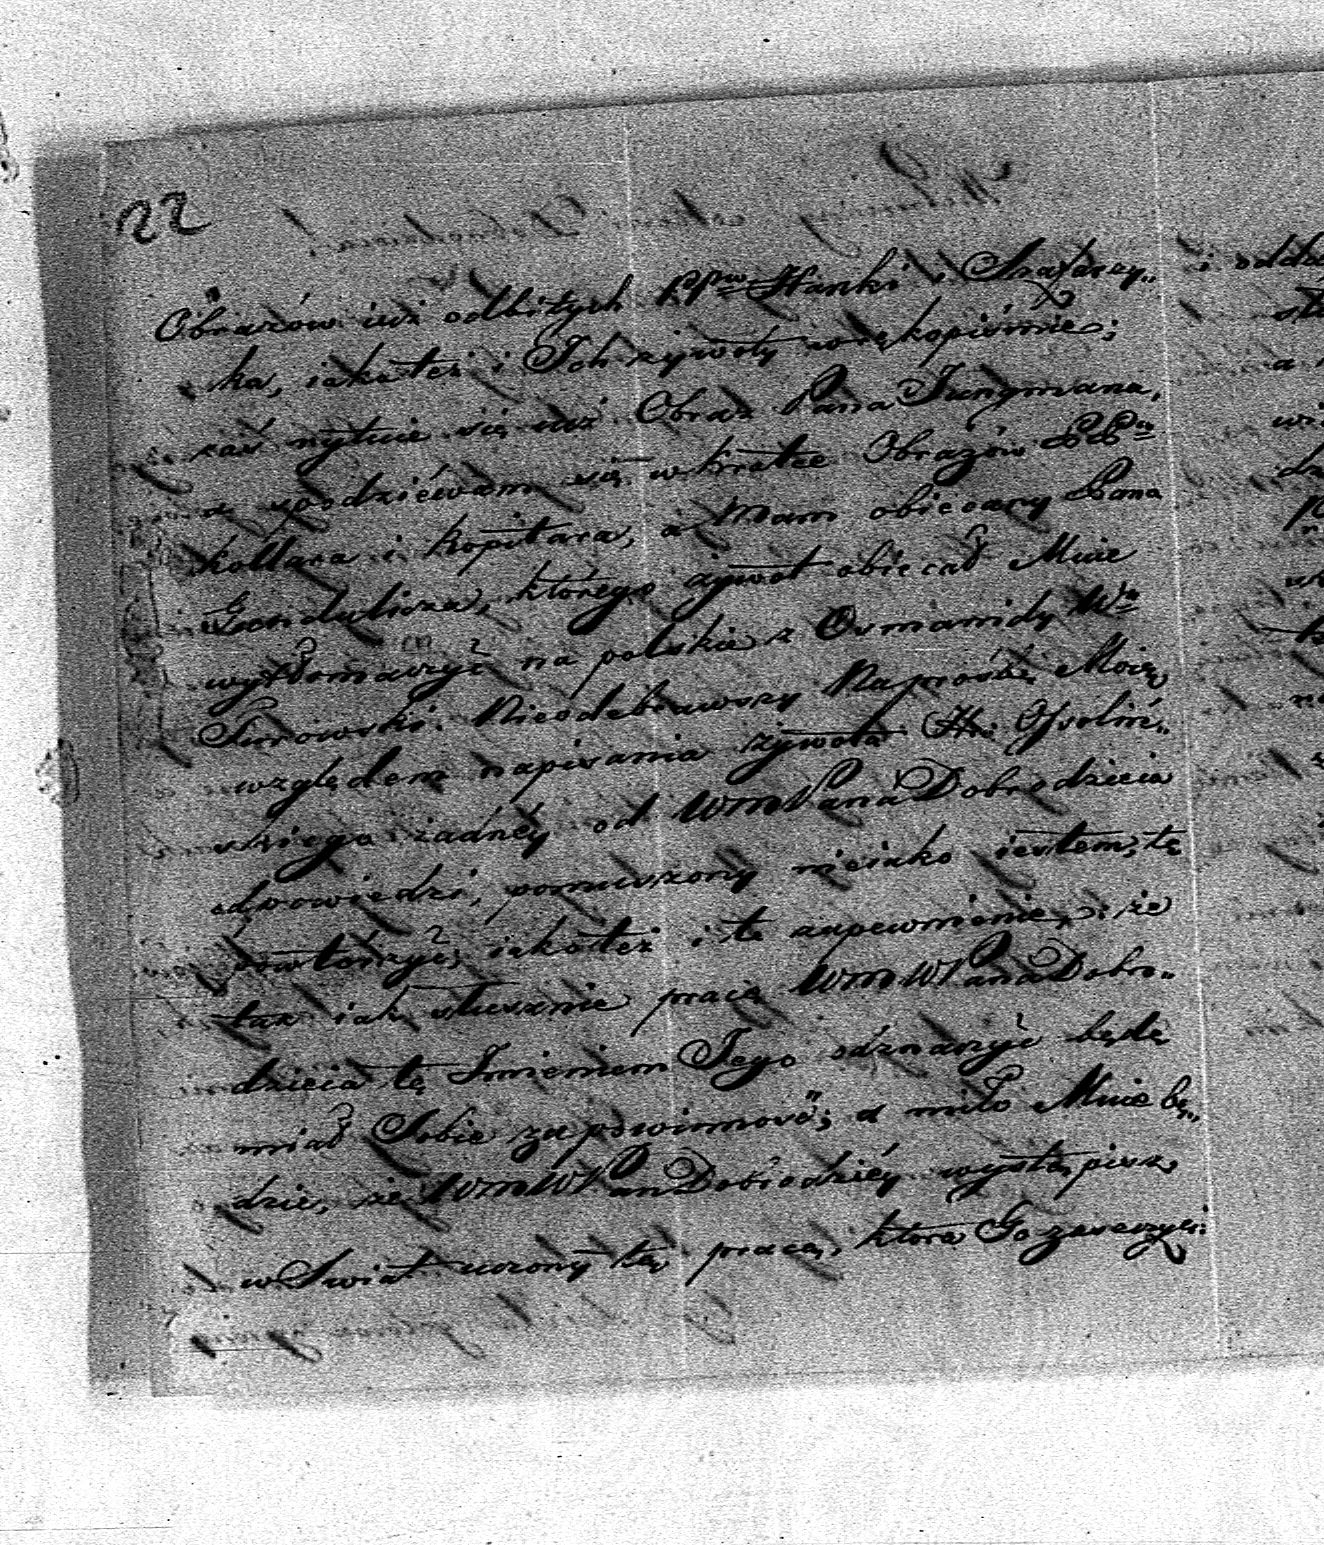 22
Obrazów iuż odbitych PP^ów Hanki i Szafarzy„
ka, iakoteż i Ich żywoty w rękopiśmie;
zaś rytuie się iuż Obraz Pana Jungmana,
a spodziewam się w krótce Obrazów PP^w
Kollara i Kopitara, a Mam obiecany Pana
Gondulicza, którego żywot obiecał Mnie
wytłomaczyć na polskie z Osmanidy W^n
Nieodebrawszy Na prośbę Moię,
względem napisania żywota Hr: Ossoliń„
skiego żadnéy od WMPana Dobrodzieia
odpowiedzi, pomuszony nieiako iestem, tę
powtórzyć, iakoteż i te zapewnienie, że
tak iak słusznie pracę WMWPana Dobro„
dzieia tę Imieniem Jego odznaczyć będę
miał Sobie za powinność; a miło Mnie bę„
dzie, że WMWPan Dobrodziéy wystąpisz
w Swiat uczony tą pracą, która Go zaszczyci: